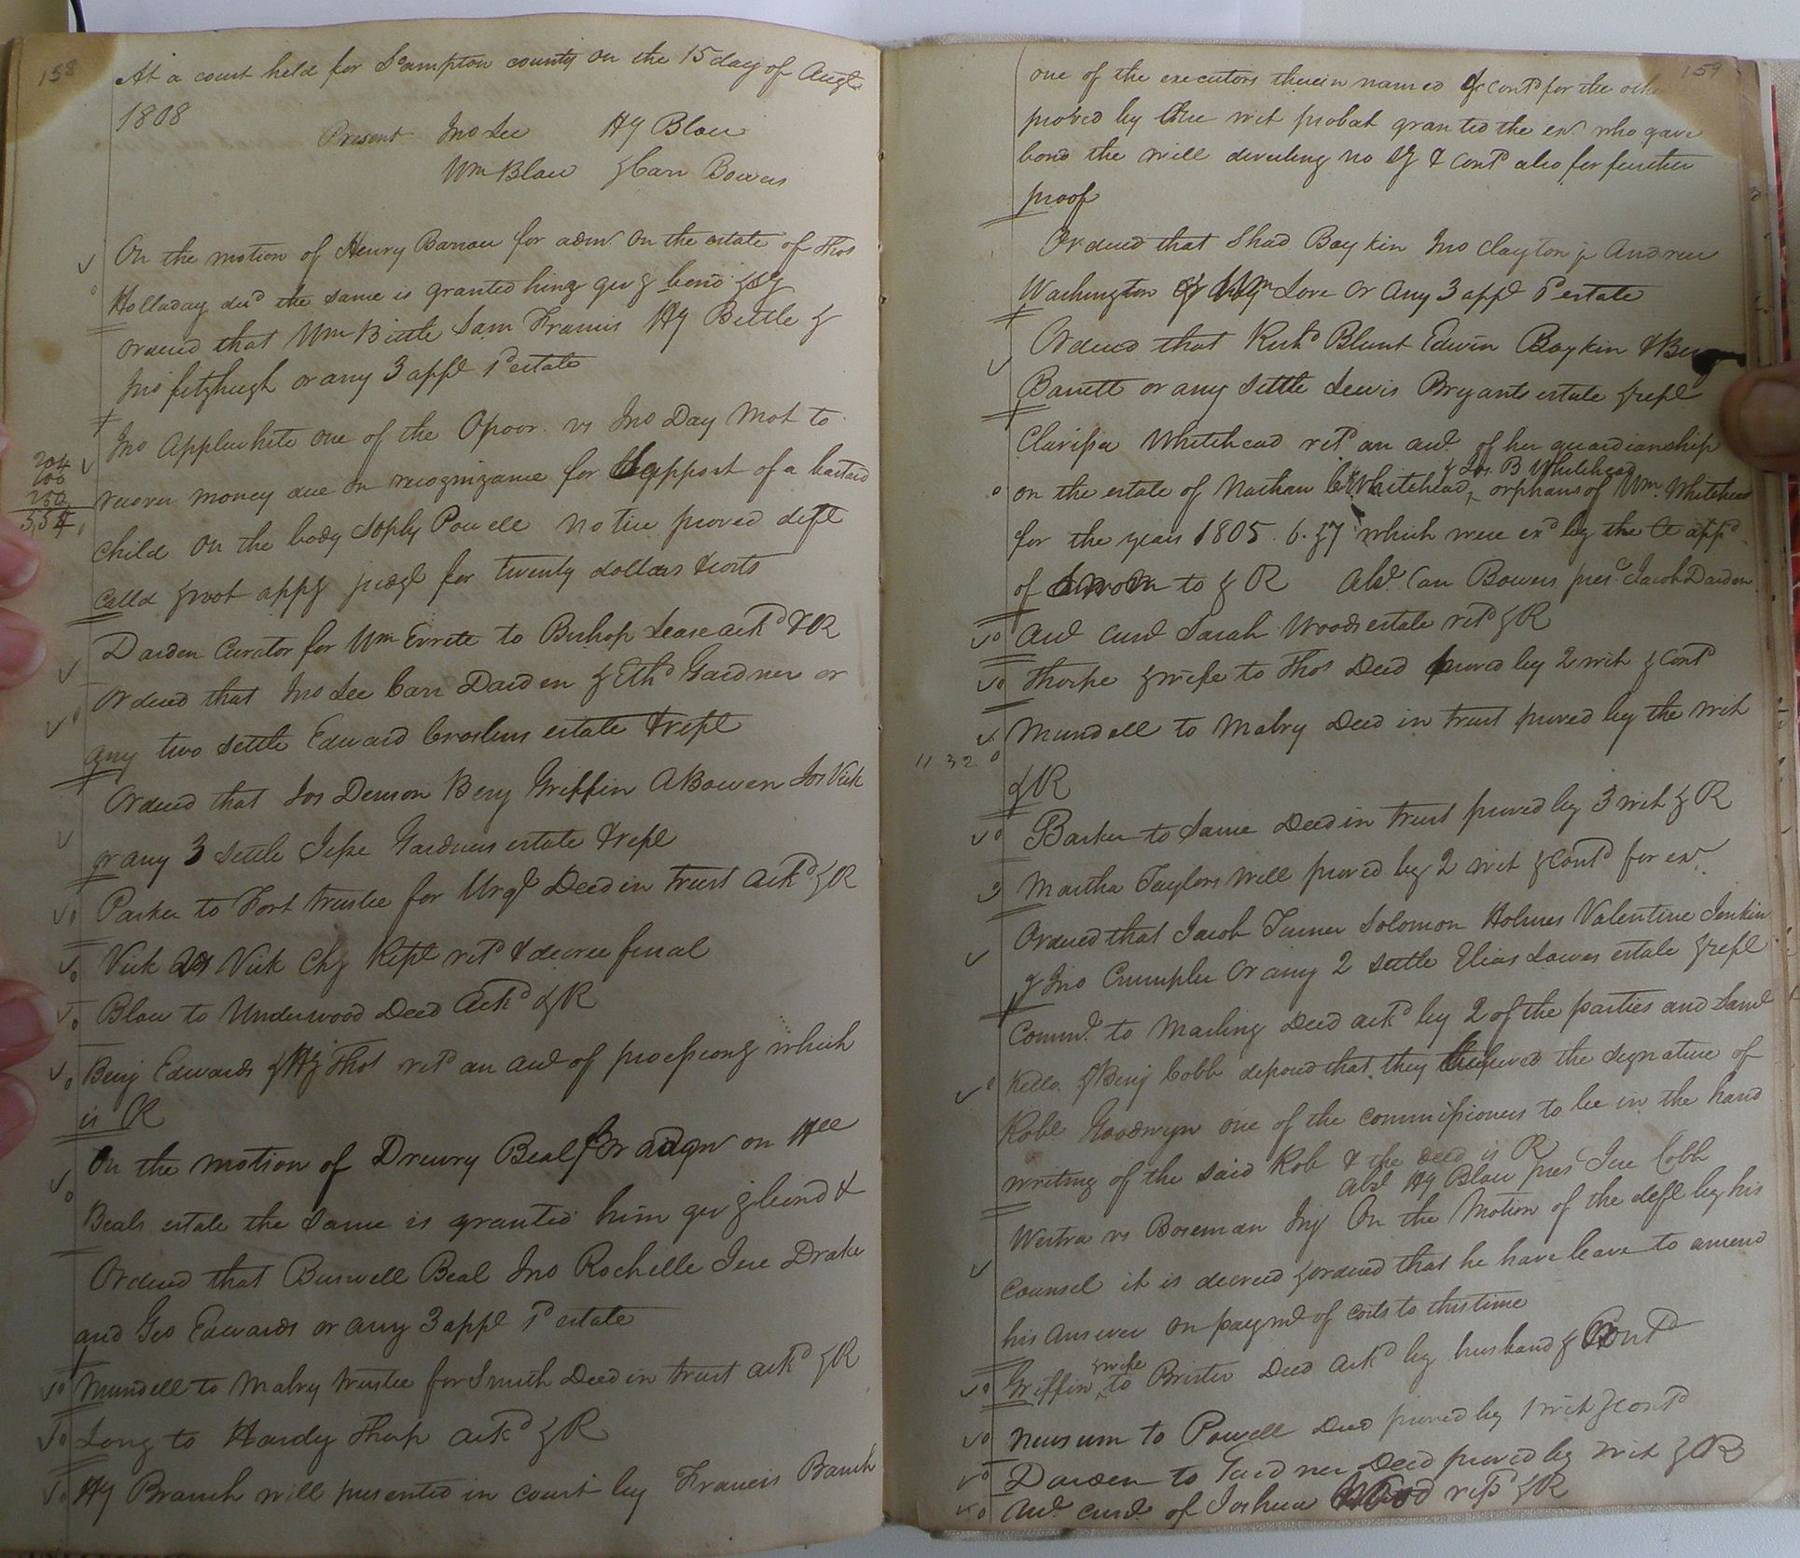 158
At a court held for S°ampton county on the 15 day of Augt
1808
Present Jno Lee Hy Blow
Wm Blow & Carr Bowers
On the motion of Henry Barrow for adm on the estate of Thos
Holladay decd the same is granted him giv g bond & sy
Ordered that Wm Bittle Sam Francis Hy Bittle &
Jno fitzhugh or any 3 appr estate
Jno Applewhite one of the Opoor vs Jno Day Mot to
recover money due on recognizance for support of a bastard
204
100
250
554
child on the body Sophy Powell notice proved deft
calld & not appg judgt for twenty dollars & costs
Darden Curator for Wm Everete to Bishop Lease ackd & R
Ordered that Jno Lee Carr Darden & Ethd Gardner or
any two settle Edward Croslins estate & rept
Ordered that Jos Denson Benj Griffin A Bowen Jos Vick
or any 3 settle Jesse Gardners estate & rept
Parker to Fort trustee for Urqt Deed in trust ackd & R
Vick vs Vick Chy Rept retd & decree final
Blow to Underwood Deed Ackd & R
Benj Edwards & Hy Thos retd an acct of processiong which
is R
On the motion of Drewry Beal for admr on
Beals estate the same is granted him giv g bond &
Ordered that Burwell Beal Jno Rochelle Jere Drake
and Geo Edwards or any 3 appr estate
Mundell to Mabry trustee for Smith Deed in trust ackd & R
Long to Hardy Thorp ackd & R
Hy Branch will presented in court by Francis Branch
159
one of the executors therein named & contd for the
proved by wit probat granted the exr who gave
bond the will directing no sy & contd also for further
proof
Ordered that Shad Boykin Jno Clayton & Andrew
Washington & Wm Love or any 3 appr estate
Ordered that Richd Blunt Edwin Boykin &
Barrett or any settle Lewis Bryants estate & rept
Clarissa Whitehead retd an acct of her guardianship
& Jos. B Whitehead
on the estate of Nathan Whitehead, orphans of Wm. Whitehead
for the years 1805. 6. & 7 which were exd by the Ct appd
of sworn to & R Abst Carr Bowers prest Jacob Darden
Act curt Sarah Woods estate retd & R
Thorpe & wife to Thos Deed proved by 2 wit & contd
Mundell to Mabry Deed in trust proved by the wit
1132
& R
Barker to Same Deed in trust proved by 3 wit & R
Martha Taylors will proved by 2 wit & contd for exr
Ordered that Jacob Turner Solomon Holmes Valentine Jenkins
& Jno Crumpler or any 2 settle Elias Lawes estate & rept
Commt to Mading Deed ackd by 2 of the parties and Saml
Kello & Benj Cobb deposed that they believed the signature of
Robt Goodwyn one of the commissioners to be in the hand
writing of the said Rob & the deed is R
Abst Hy Blow prest Jere Cobb
Westra vs Boseman Inj On the Motion of the deft by his
counsel it is decreed & ordered that he have leave to amend
his answer on paymt of costs to this time
& wife
Griffin to Brister Deed ackd by husband & contd
Newsum to Powell Deed proved by 1 wit & contd
Darden to Gardner Deed proved by wit & R
Act curt of Joshua retd & R